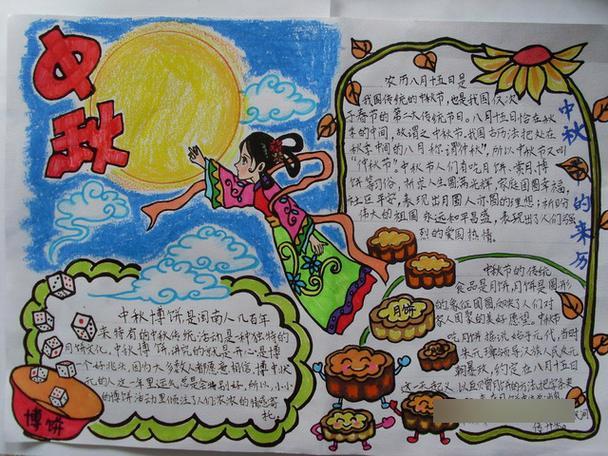 中秋
中秋的来历
农历八月十五日是
我国传统的中秋节,也是我国仅次
于春节的第二大传统节日。八月十五恰在秋
季的中间,故谓之中秋节。我国古历法把处在
秋季中间的八月称谓“仲秋”,所以中秋节又叫
“仲秋节”。中秋节人们有吃月饼、赏月、博
饼等习俗,祈求人生圆满光辉,家庭团圆幸福,
社区平安,表现出月圆人亦圆的理想;祈盼
伟大的祖国永远和平昌盛,表现了人们强
烈的爱国热情。
中秋节的传统
食品是月饼,月饼是圆形
的,象征团圆,反映了人们对
家人团聚的美好愿望。中秋节
吃月饼据说始于元代,当时
朱元璋领导汉族人民反元
朝暴政,约定在八月十五日
这一天起义,以互赠月饼的方法把字条夹
月饼
中秋博饼是闽南人几百年
来特有的中秋传统活动,是种独特的
月饼文化。中秋博饼,讲究的就是开心,是博
一个好兆头,因为大多数人都愿意相信,博中状
元的人这一年里运气总是会特别好。所以,小小
的博饼活动里倾注了人们浓浓的情感寄
托。
博饼